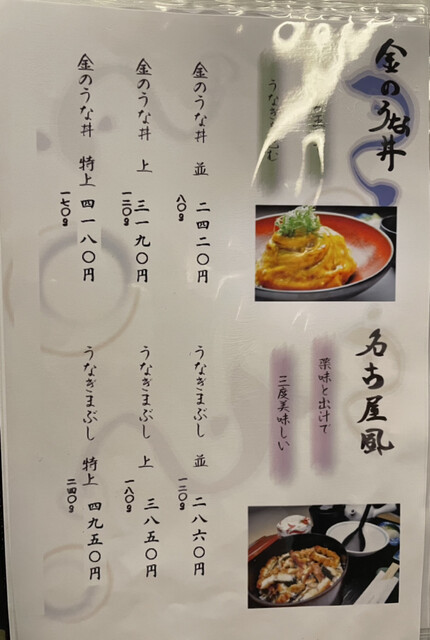 金のうな丼
うなぎ
む
金のうな丼 並 二四二〇円
八〇g
金のうな丼 上 三一九〇円
一二〇g
金のうな丼 特上 四一八〇円
一七〇g
名古屋風
薬味と出汁で
三度美味しい
うなぎまぶし 並 二八六〇円
一二〇g
うなぎまぶし 上 三八五〇円
一八〇g
うなぎまぶし 特上 四九五〇円
二四〇g